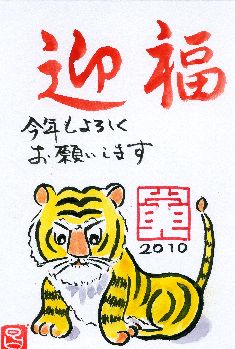 迎福
今年もよろしく
お願いします
2010